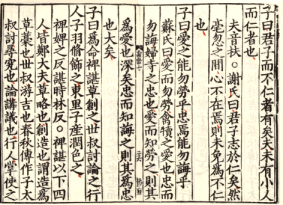 子曰君子而不仁者有矣夫未有小人
而仁者也
夫音扶○謝氏曰君子志於仁矣然
毫忽之間心不在焉則未免為不仁
也
子曰愛之能勿勞乎忠焉能勿誨乎
蘇氏曰愛而勿勞禽犢之愛也忠而
勿誨婦寺之忠也愛而知勞之則其
為愛也深矣忠而知誨之則其為忠
也大矣
子曰為命裨諶草創之世叔討論之行
人子羽脩飾之東里子產潤色之
裨婢之反諶時林反○裨諶以下四
人皆鄭大夫草略也創造也謂造為
草藁也世叔游吉也春秋傳作子太
叔討尋究也論講議也行人掌使之